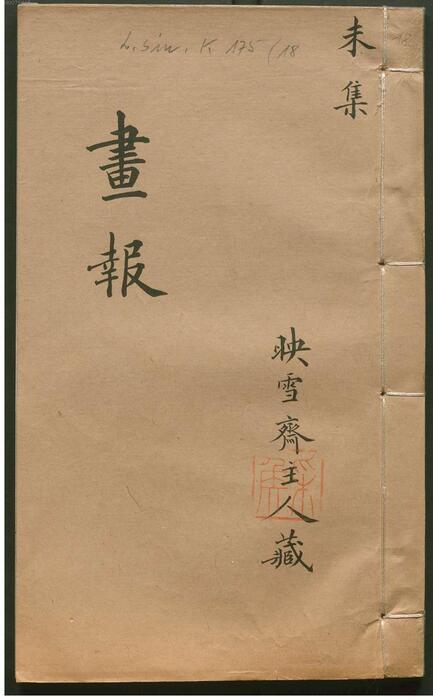 L. sin. K 175 (18
18
未集
畫報
映雪齋主人藏